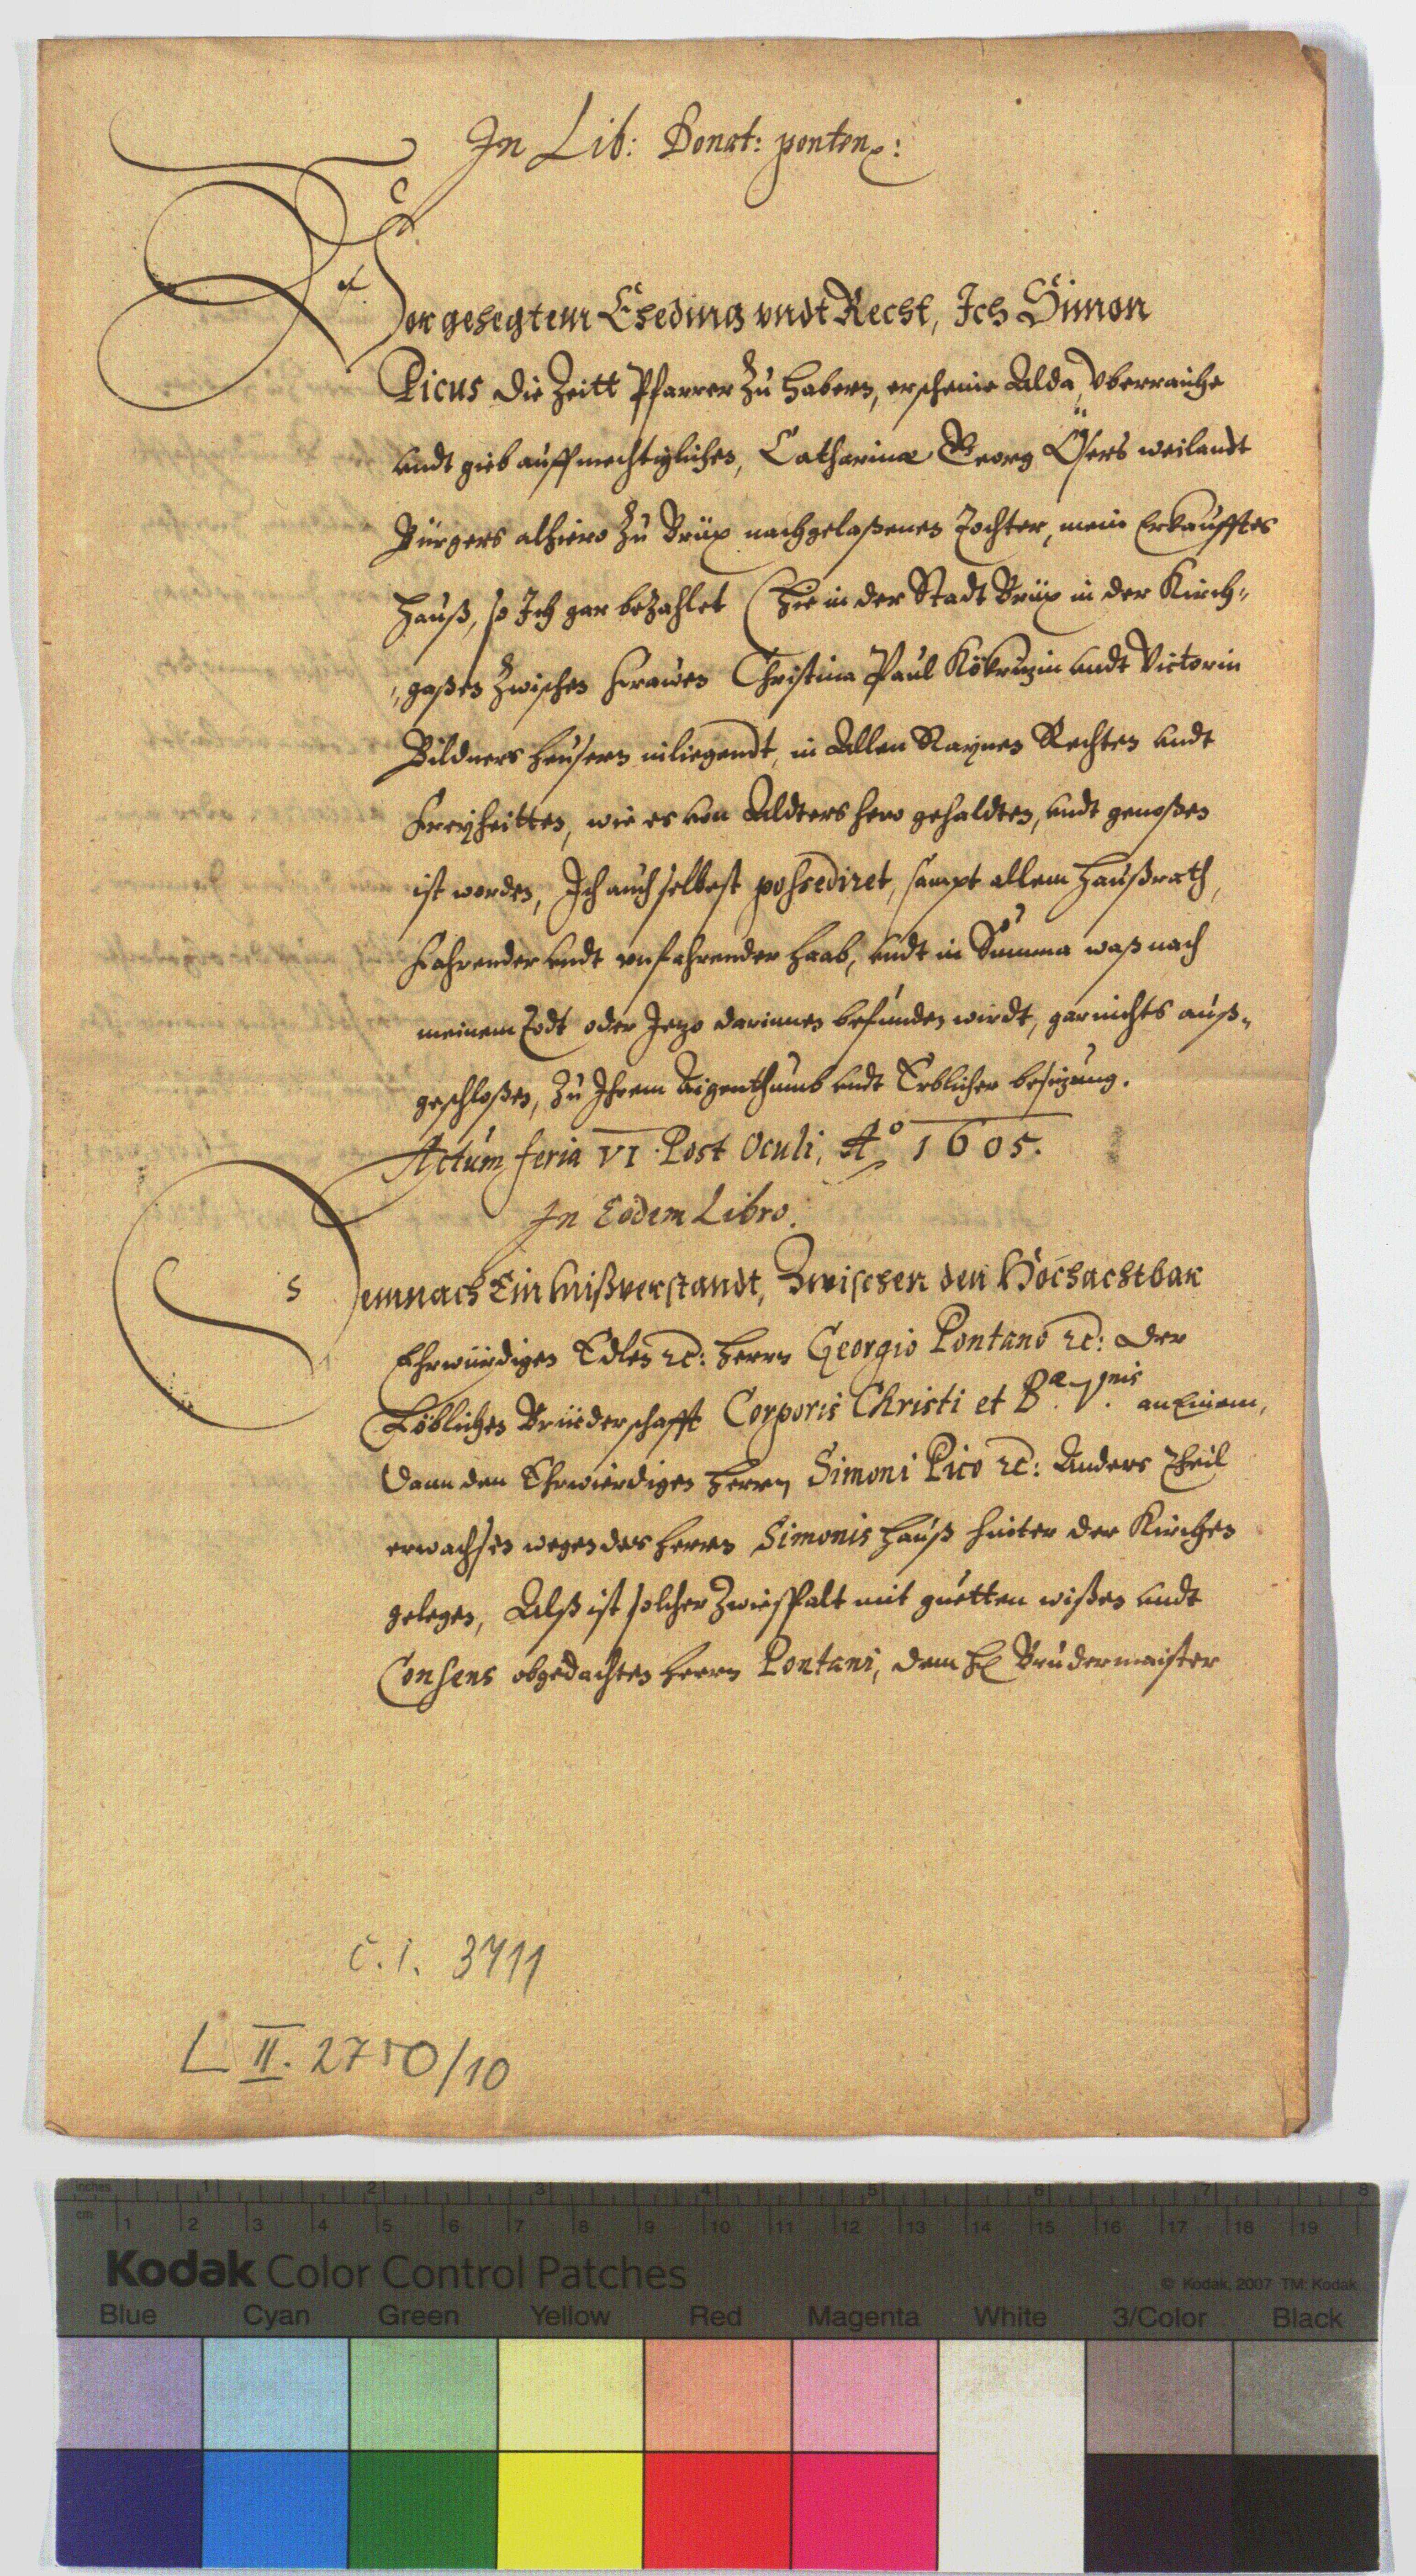 In Lib: Donat: ponten:
Vor gehegtem Eheding vndt Recht, Ich Simon
Picus die Zeitt Pfarrer Zu Habern, erscheine Alda, vberraiche
vndt gieb auff mechtiglichen, Catharinæ Georg Ösers weilandt
Bürgers alhiero Zu Brüx nachgelaßenen Tochter, mein Erkaufftes
Hauß, so Ich gar bezahlet (Hie in der Stadt Brüx in der Kirch„
„gaßen Zwischen Frawen Christina Paul Kökrizin vndt Victorin
Bildners Heusern inliegendt, in Allen Raynen Rechten vndt
Freyheitten, wie es von Aldters hero gehaldten, vndt genoßen
ist worden, Ich auch selbest possediret, sampt allem Haußrath,
Fahrender vndt vnfahrender Haab, vndt in Summa waß nach
meinem Todt oder Jezo darinnen befunden wirdt, gar nichts auß„
geschloßen, Zu Ihrem Aigenthumb vndt Erblicher besizung.
Actum feria VI Post Oculi, Aº 1605.
In Eodem Libro.
Demnach Ein Mißverstandt, Zwischen den Hochachtbar
Ehrwürdigen Edlen ꝛc: Herrn Georgio Pontano ꝛc: der
Löblichen Brüederschafft Corporis Christi et Bæ. Vgnis an Einem,
Dann den Ehrwürdigen Herrn Simoni Pico ꝛc: Anders Theil
erwachsen wegen des Herrn Simonis Hauß hinter der Kirchen
gelegen, Alß ist solcher Zwiespalt mit guetten wißen vndt
Consens obgedachten Herrn Pontani, dem H Brudermaister
č. i. 3711
L II. 2750/10
inches 1 2 3 4 5 6 7 8
cm 1 2 3 4 5 6 7 8 9 10 11 12 13 14 15 16 17 18 19
Kodak Color Control Patches
© Kodak, 2007 TM: Kodak
Blue Cyan Green Yellow Red Magenta White 3/Color Black